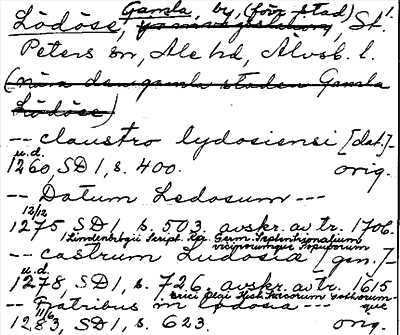 Lödöse, Gamla, by, (förr stad) St.
Peters sn, Ale hd, Älvsb. l.
(nära den gamla staden Gamla
Lödöse)
-- claustro lydosiensi [dat.]-
u.d.
1260, SD 1, s. 400. orig.
-- Datum Ledosum ---
12/12
1275 SD 1, s. 503. avskr. av tr. 1706.
Lindenbrogii Script. Rer. Germ. Septentrionalium
vicinorumque Populorum
-- castrum Ludosia [gen.]-
u.d.
1278, SD 1, s. 726. avskr. av tr. 1615
Erici Olai Hist. Svecorum Gothorum-
que
-- Fratribus in Lodosia --
11/6
1283, SD 1, s. 623. orig.